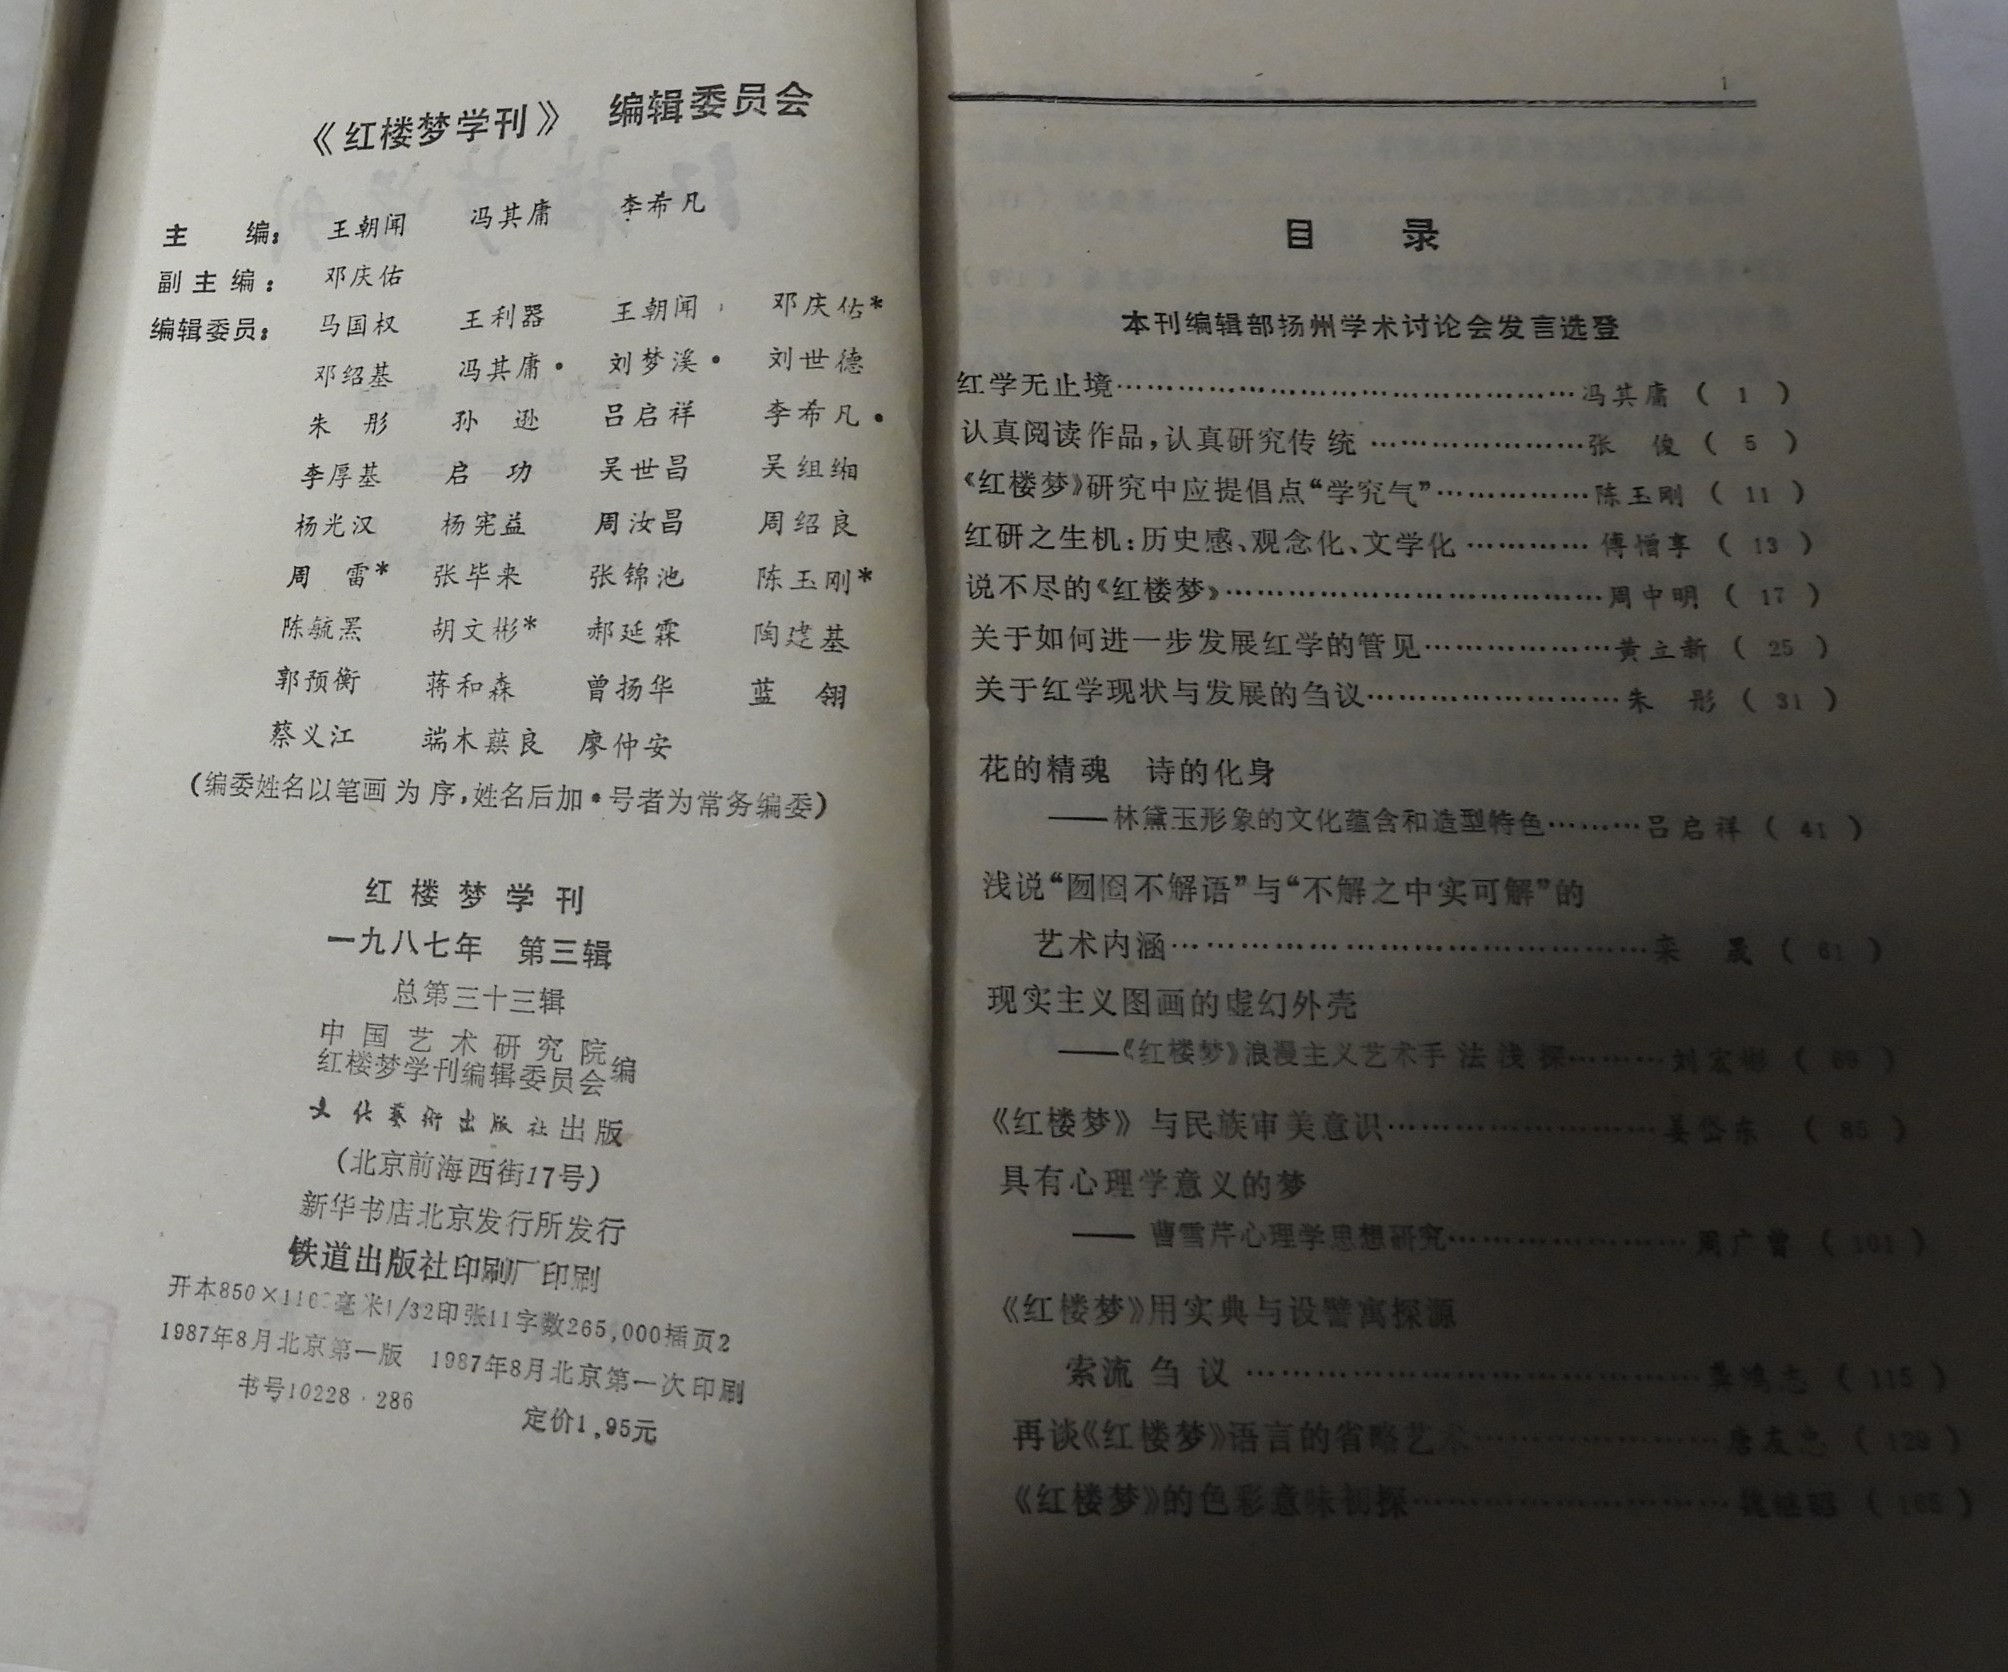 《红楼梦学刊》 编辑委员会
主 编： 王朝闻 冯其庸 李希凡
副主编： 邓庆佑
编辑委员： 马国权 王利器 王朝闻 邓庆佑*
邓绍基 冯其庸• 刘梦溪• 刘世德
朱 彤 孙 逊 吕启祥 李希凡•
李厚基 启 功 吴世昌 吴组缃
杨光汉 杨宪益 周汝昌 周绍良
周 雷* 张毕来 张锦池 陈玉刚*
陈毓罴 胡文彬* 郝延霖 陶建基
郭预衡 蒋和森 曾扬华 蓝 翎
蔡义江 端木蕻良 廖仲安
(编委姓名以笔画为序,姓名后加*号者为常务编委)
红楼梦学刊
一九八七年 第三辑
总第三十三辑
中国艺术研究院
红楼梦学刊编辑委员会编
文化藝術出版社出版
(北京前海西街17号)
新华书店北京发行所发行
铁道出版社印刷厂印刷
开本850×116 毫米1/32印张11字数265,000插页2
1987年8月北京第一版 1987年8月北京第一次印刷
书号10228·286
定价1.95元
1
目 录
本刊编辑部扬州学术讨论会发言选登
红学无止境……………………………………冯其庸 ( 1 )
认真阅读作品,认真研究传统 …………………张 俊 ( 5 )
《红楼梦》研究中应提倡点“学究气”……………陈玉刚 ( 11 )
红研之生机:历史感、观念化、文学化 …………傅憎享 ( 13 )
说不尽的《红楼梦》………………………………周中明 ( 17 )
关于如何进一步发展红学的管见………………黄立新 ( 25 )
关于红学现状与发展的刍议……………………朱 彤 ( 31 )
花的精魂 诗的化身
——林黛玉形象的文化蕴含和造型特色………吕启祥 ( 41 )
浅说“囫囵不解语”与“不解之中实可解”的
艺术内涵………………………………………栾 晟 ( 61 )
现实主义图画的虚幻外壳
——《红楼梦》浪漫主义艺术手法浅探………刘宏彬 ( 69 )
《红楼梦》与民族审美意识……………………姜岱东 ( 85 )
具有心理学意义的梦
——曹雪芹心理学思想研究…………………周广曾 ( 101 )
《红楼梦》用实典与设譬寓探源
索流刍议 ……………………………………鸿志 ( 115 )
再谈《红楼梦》语言的省略艺术…………………唐友忠 ( 129 )
《红楼梦》的色彩意味初探………………………… ( 165 )